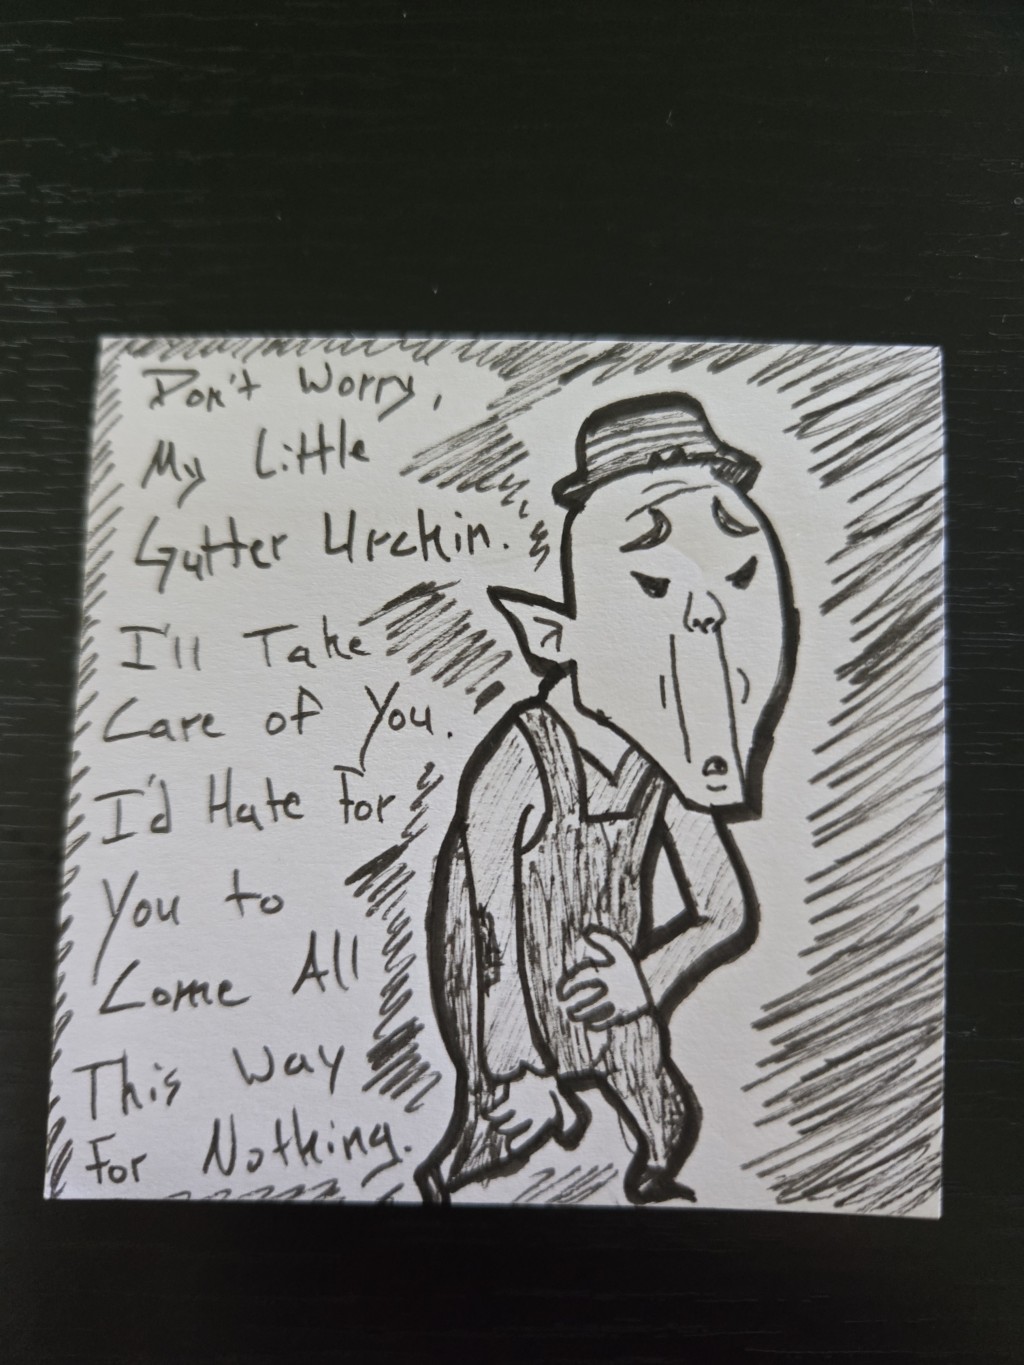 Don't Worry,
My Little
Gutter Urchin.
I'll Take
Care of You.
I'd Hate For
You to
Come All
This Way
For Nothing.